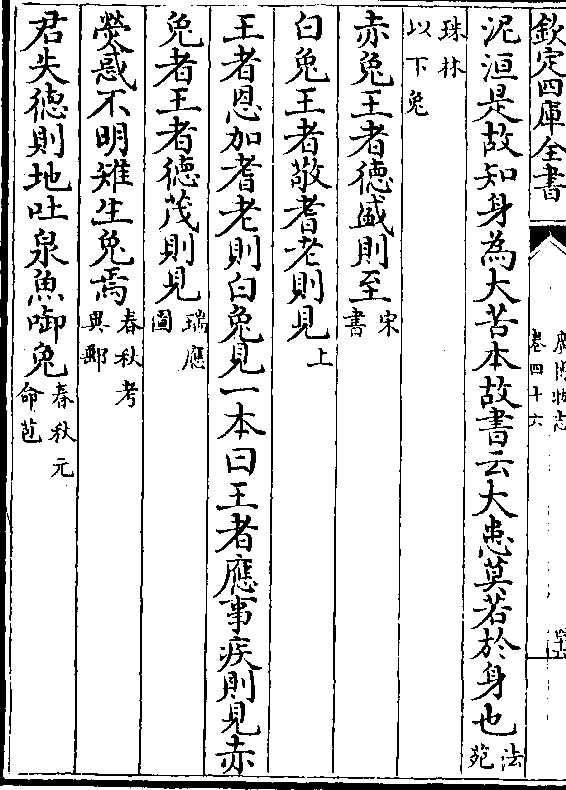 欽定四庫全書
廣博物志
卷四十六
泥洹是故知身為大苦本故書云大患莫若於身也法苑
珠林
以下兔
赤兔王者德盛則至宋書
白兔王者敬耆老則見上
王者恩加耆老則白兔見一本曰王者應事疾則見赤
兔者王者德茂則見瑞應圖
熒惑不明雉生兔焉春秋考異郵
君失德則地吐泉魚啣兔春秋元命苞